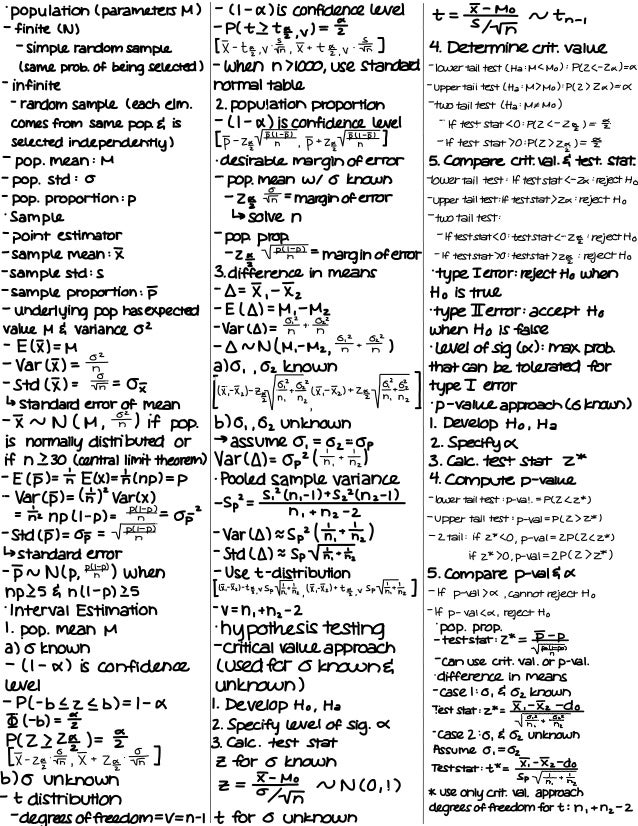 ·population (parameters M)
- finite (N)
- simple random sample
(same prob. of being selected)
- infinite
- random sample (each elm.
comes from same pop. & is
selected independently)
- pop. mean: M
- pop. std: σ
- pop. proportion: p
·Sample
- point estimator
- sample mean: x̄
- sample std: s
- sample proportion: p̄
- underlying pop has expected
value M & variance σ²
- E(x̄) = M
- Var(x̄) = σ²/n
- Std(x̄) = σ/√n = σx̄
↳ standard error of mean
- x̄ ~ N(M, σ²/n) if pop.
is normally distributed or
if n ≥ 30 (central limit theorem)
- E(p̄) = 1/n E(x) = 1/n (np) = p
- Var(p̄) = (1/n)² Var(x)
= 1/n² np(1-p) = p(1-p)/n = σp̄²
- Std(p̄) = σp̄ = √p(1-p)/n
↳ standard error
- p̄ ~ N(p, p(1-p)/n) when
np ≥ 5 & n(1-p) ≥ 5
·Interval Estimation
1. pop. mean M
a) σ known
- (1-α) is confidence
level
- P(-b ≤ z ≤ b) = 1-α
Φ(-b) = α/2
P(Z ≥ Zα/2) = α/2
[x̄ - Zα/2 · σ/√n, x̄ + Zα/2 · σ/√n]
b) σ unknown
- t distribution
- degrees of freedom = v = n-1
- (1-α) is confidence level
- P(t ≥ tα/2,v) = α/2
[x̄ - tα/2,v · s/√n, x̄ + tα/2,v · s/√n]
- when n > 1000, use standard
normal table
2. population proportion
- (1-α) is confidence level
[p̄ - Zα/2 √p̄(1-p̄)/n, p̄ + Zα/2 √p̄(1-p̄)/n]
·desirable margin of error
- pop. mean w/ σ known
- Zα/2 σ/√n = margin of error
↳ solve n
- pop. prop.
- Zα/2 √p(1-p)/n = margin of error
3. difference in means
- Δ = x̄₁ - x̄₂
- E(Δ) = M₁ - M₂
- Var(Δ) = σ₁²/n₁ + σ₂²/n₂
- Δ ~ N(M₁-M₂, σ₁²/n₁ + σ₂²/n₂)
a) σ₁, σ₂ known
[(x̄₁-x̄₂) - Zα/2 √σ₁²/n₁ + σ₂²/n₂, (x̄₁-x̄₂) + Zα/2 √σ₁²/n₁ + σ₂²/n₂]
b) σ₁, σ₂ unknown
→ assume σ₁ = σ₂ = σp
Var(Δ) = σp² (1/n₁ + 1/n₂)
·Pooled sample variance
- Sp² = S₁²(n₁-1) + S₂²(n₂-1) / n₁ + n₂ - 2
- Var(Δ) ≈ Sp² (1/n₁ + 1/n₂)
- Std(Δ) ≈ Sp √1/n₁ + 1/n₂
- Use t-distribution
[(x̄₁-x̄₂) - tα/2,v Sp √1/n₁ + 1/n₂, (x̄₁-x̄₂) + tα/2,v Sp √1/n₁ + 1/n₂]
- v = n₁ + n₂ - 2
·hypothesis testing
- critical value approach
(used for σ known &
unknown)
1. Develop H₀, Ha
2. Specify level of sig. α
3. Calc. test stat
z for σ known
z = x̄ - M₀ / σ/√n ~ N(0,1)
t for σ unknown
t = x̄ - M₀ / s/√n ~ tn-1
4. Determine crit. value
- lower tail test (Ha: M < M₀): P(Z < -Zα) = α
- upper tail test (Ha: M > M₀): P(Z > Zα) = α
- two tail test (Ha: M ≠ M₀)
- If test stat < 0: P(Z < -Zα/2) = α/2
- If test stat > 0: P(Z > Zα/2) = α/2
5. Compare crit. val. & test. stat.
- lower tail test: If test stat < -Zα: reject H₀
- upper tail test: if test stat > Zα: reject H₀
- two tail test:
- If test stat < 0: test stat < -Zα/2: reject H₀
- If test stat > 0: test stat > Zα/2: reject H₀
·type I error: reject H₀ when
H₀ is true
·type II error: accept H₀
when H₀ is false
·level of sig (α): max prob.
that can be tolerated for
type I error
·p-value approach (σ known)
1. Develop H₀, Ha
2. Specify α
3. Calc. test stat Z*
4. Compute p-value
- lower tail test: p-val. = P(Z < z*)
- upper tail test: p-val = P(Z > z*)
- 2 tail: if z* < 0, p-val = 2P(Z < z*)
if z* > 0, p-val = 2P(Z > z*)
5. Compare p-val & α
- If p-val > α, cannot reject H₀
- If p-val < α, reject H₀
·pop. prop.
- test stat: Z* = p̄ - p / √p(1-p)/n
- Can use crit. val. or p-val.
·difference in means
- Case 1: σ₁ & σ₂ known
Test stat: z* = x̄₁ - x̄₂ - d₀ / √σ₁²/n₁ + σ₂²/n₂
- Case 2: σ₁ & σ₂ unknown
Assume σ₁ = σ₂
Test stat: t* = x̄₁ - x̄₂ - d₀ / Sp √1/n₁ + 1/n₂
* use only crit. val. approach
degrees of freedom for t: n₁ + n₂ - 2